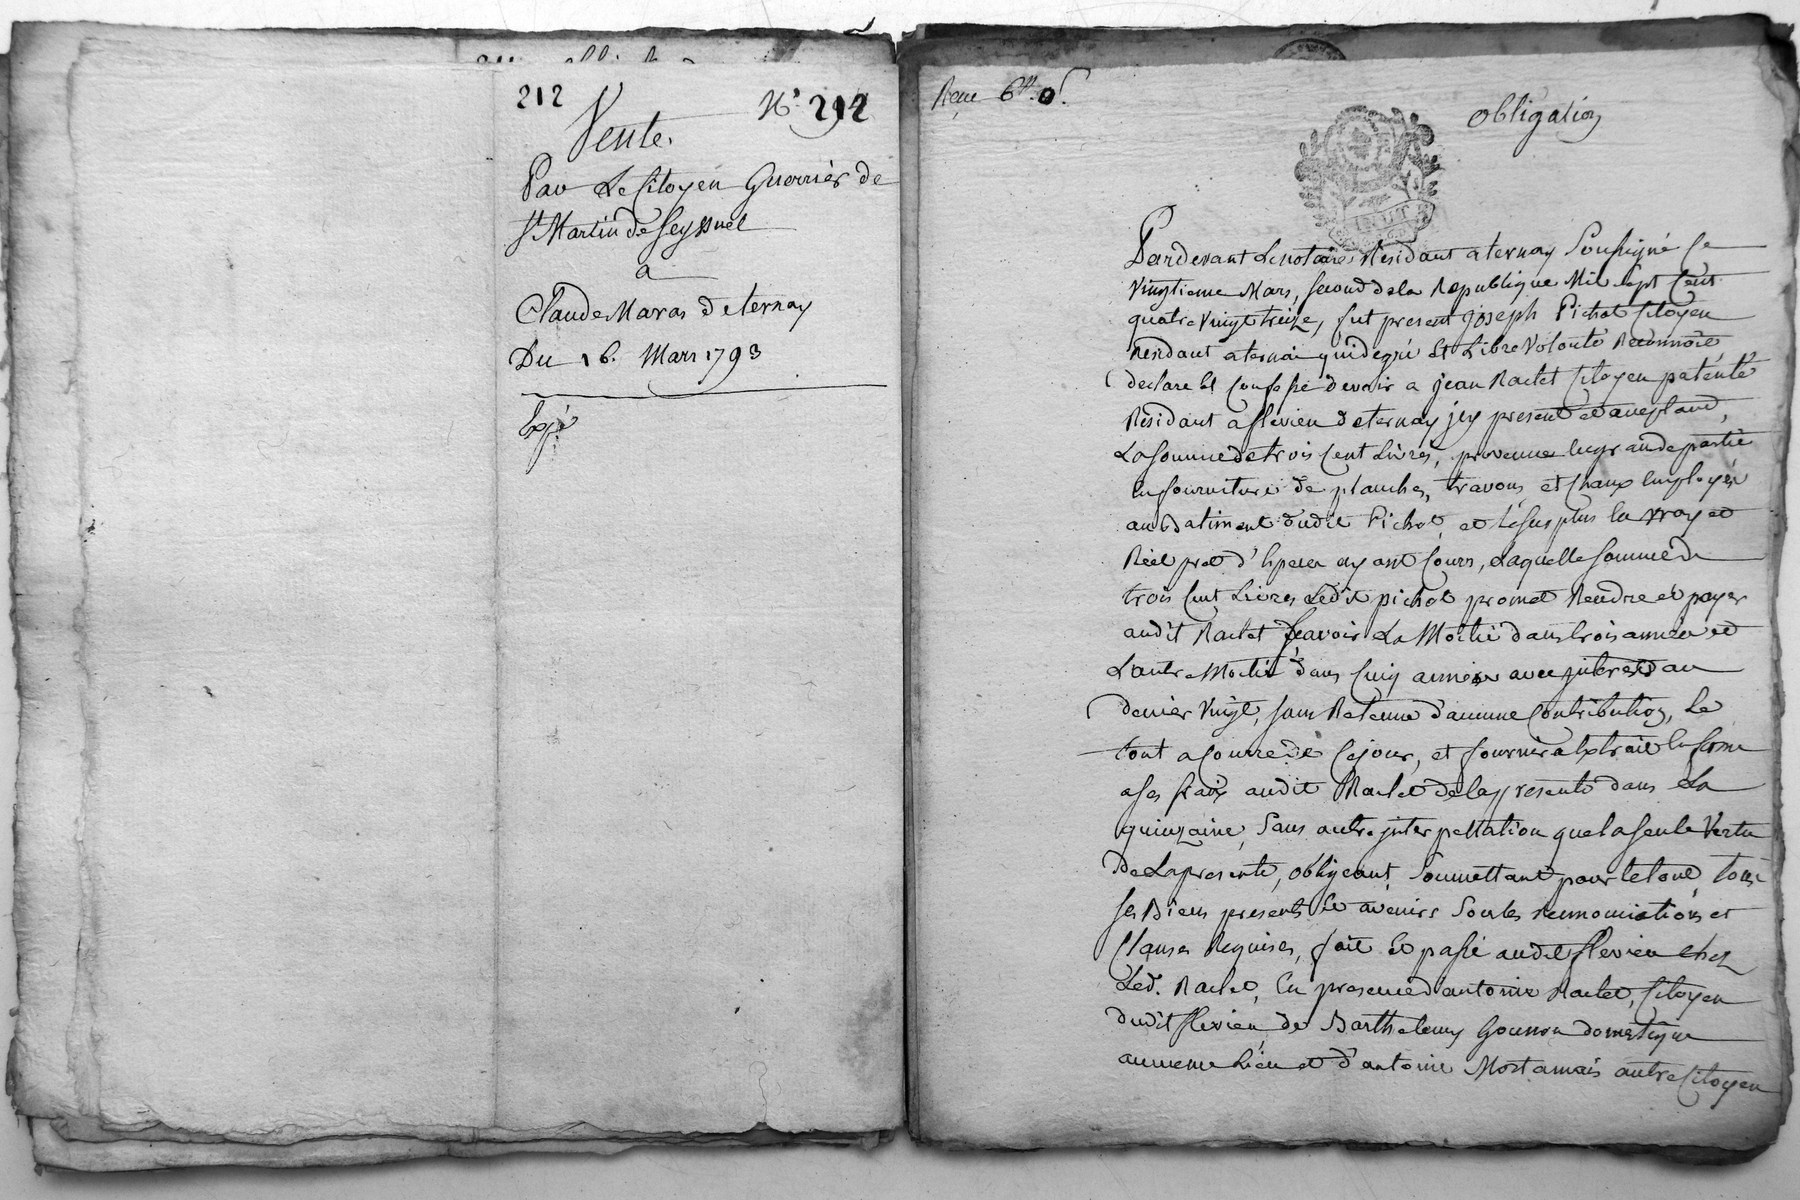 212
N° 212
Vente
Par Le Citoyen Guerrier de
St Martin de Seyssuel
a
Claude Maras de ternay
Du 16. Mars 1793
Expé
Reçu 6tt. 0s.
obligation
Pardevant Le notaire Résidant a ternay Soussigné Ce
Vingtieme Mars, second de la Republique Mil Sept Cent
quatre Vingt treize, fut present Joseph Pichot Citoyen
Résidant a ternai qui de gré et Libre Volonté Reconnoit
declare et Confesse devoir a jean Raclet Citoyen patenté
Résidant a flevieu de ternay jcy present et acceptant,
La somme de trois Cent Livres, provenue en grande partie
en fourniture de planches, travons, et Chaux employés
au Batiment dudit Pichot, et le surplus en vray et
Réel pret d'Especes ayant Cours, Laquelle somme de
trois Cent Livres Ledit pichot promet Rendre et payer
audit Raclet Sçavoir La Moitié dans trois années et
L'autre Moitié dans Cinq années avec jnterest au
denier Vingt, sans Retenue d'aucune Contribution, Le
tout a Courre de Ce jour, et fournir Extrait en forme
a ses fraix audit Raclet de la presente dans La
quinzaine, Sans autre jnterpellation que la seule Vertu
de La presente, obligeant, Soumettant pour le tout, tous
ses Biens presents et avenirs Sous les rennonciations et
Clauses Requises, fait et passé audit flevieu chez
Led. Raclet, En presence d'antoine Raclet, Citoyen
dudit flevieu, de Barthelemy Gounon domestique
au meme Lieu et d'antoine Mortamais autre Citoyen